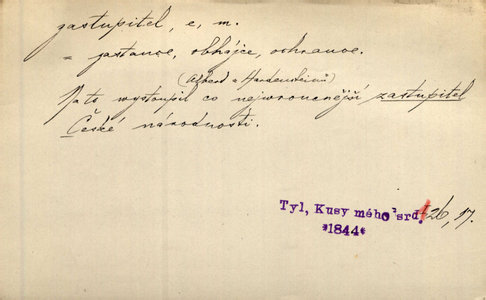 zastupitel, e, m.
= zastance, obhájce, ochrance.
(Alberd z Hardensteinů)
Na to wystoupil co nejwroucnější zastupitel
České národnosti.
Tyl, Kusy mého srd. 126, 17.
*1844*